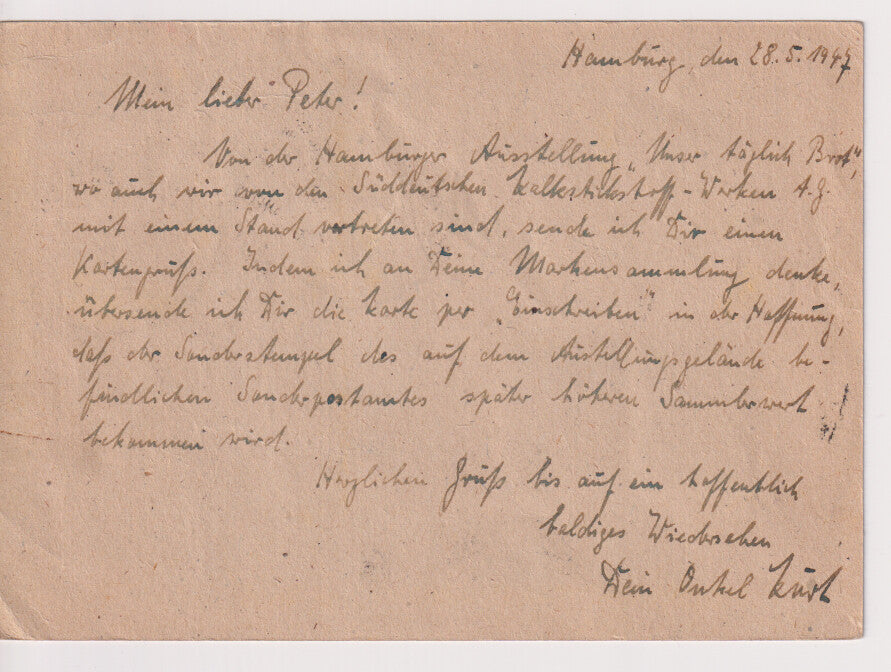 Hamburg, den 28.5.1947
Mein lieber Peter!
Von der Hamburger Ausstellung „Unser täglich Brot",
wo auch wir von den Süddeutschen Kalkstickstoff-Werken A.G.
mit einem Stand vertreten sind, sende ich Dir einen
Kartengruß. Indem ich an Deine Markensammlung denke,
übersende ich Dir die Karte per „Einschreiben" in der Hoffnung,
daß der Sonderstempel des auf dem Austellungsgelände be-
findlichen Sonderpostamtes später höheren Sammlerwert
bekommen wird.
Herzlichen Gruß bis auf ein hoffentlich
baldiges Wiedersehen
Dein Onkel Kurt